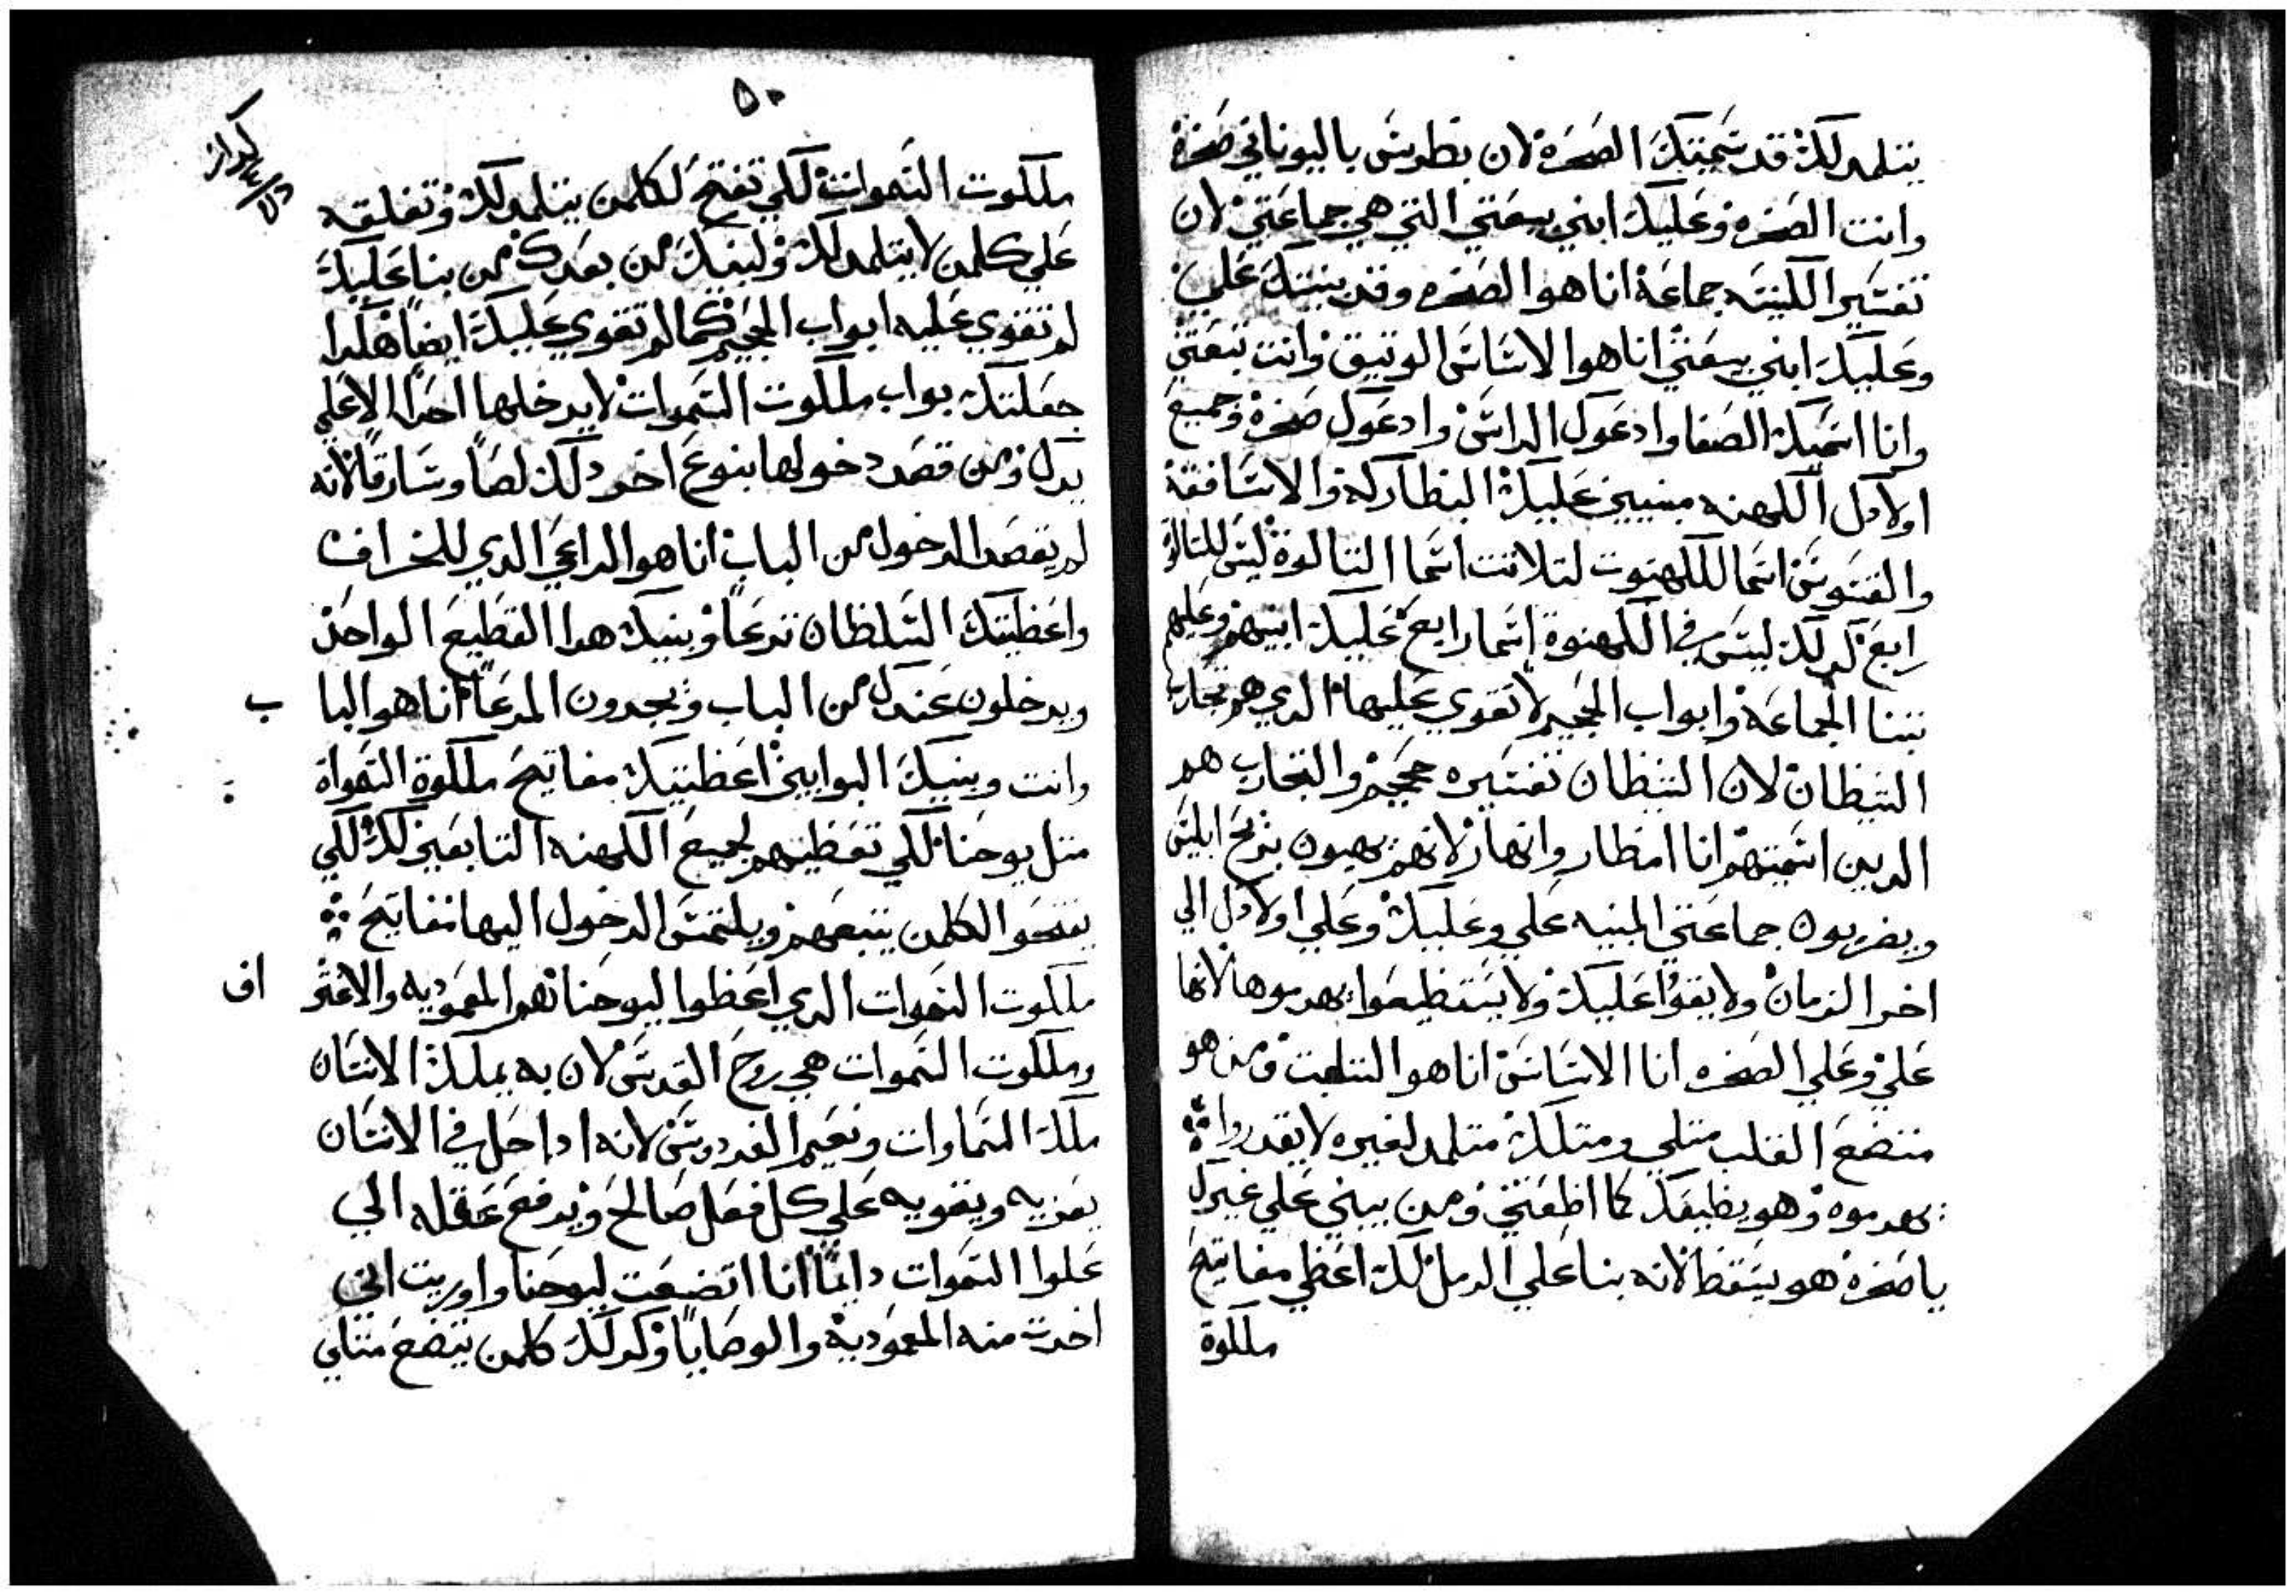 يتلمد لك قد سميتك الصخره لان بطرس باليوناني صخره
وانت الصخره وعليك ابني بيعتي التي هي جماعتي لان
تفسير الكنيسه جماعة انا هوا الصخره وقد بنيتك علي
وعليك ابني بيعتي انا هوا الاساس الوتيق وانت تتبعني
وانا اسميك الصفا وادعوك الراس وادعوك صخره وجميع
اولادك الكهنه مبنيين عليك البطاركه والاساقفة
والقسوس اسما للكهنوت لتلاتت اسما التالوة ليس للتالوة
رابع كدلك ليس في الكهنوة اسما رابع عليك ابنيهم وعليهم
تبنا الجماعة وابواب الجحيم لا تقوي عليها الدي هم تجارب
الشيطان لان الشيطان تفسيره جحيم والتجارب هم
الدين اسميتهم انا امطار وانهار لانهم يهبون بزيح ابليس
ويضربون جماعتي المبنيه علي وعليك وعلي اولادك الي
اخر الزمان ولا يقوا عليك ولا يستطيعوا يهدموها لانها
علي وعلي الصخره انا الاساس انا هوا المتلمت ومن هو
متضع القلب متلي ومتلك متلمد لغيره لا يقدروا
يهدموه وهو يطيعك كما اطعتني ومن يبني علي غيرك
يا صخره هو يسقط لانه بنا علي الرمل لك اعطي مفاتيح
ملكوة
٥٠
ملكوت السموات لكي تفتح لكلمن يتلمد لك وتغلقه
علي كلمن لا يتلمد لك وليعبك من بعدك من بنا عليك
لم تقوي عليه ابواب الجحيم كما لم تقوي عليك ايضا هكدا
جعلتك بواب ملكوت السموات لا يدخلها احدا الا علي
يدك ومن قصد دخولها بنوع اخر دلك لصا وسارقا لانه
لم يقصد الدخول من الباب انا هوا الراعي الدي للخراف
واعطيتك السلطان ترعا وبنيك هدا القطيع الواحد
ويدخلون عندك من الباب ويجدون المرعا انا هوا البا ب
وانت وبنيك البوابين اعطيتك مفاتيح ملكوة السمواة
متل يوحنا لكي تعطيهم لجميع الكهنه التابعين لك لكي
يفتحوا لكلمن يتبعهم ويلتمس الدخول اليها مفاتيح
ملكوت السموات الدي اعطوا ليوحنا هوا المعموديه والاعتر اف
وملكوت السموات هي روح القدس لان به يملك الانسان
ملك السماوات ونعيم الفردوس لانه ادا حل في الانسان
يعزيه ويقويه علي كل فعل صالح ويرفع عقله الي
علوا السموات دايما انا اتضعت ليوحنا واوريت اني
اخدت منه المعموديه والوصايا وكدلك كلمن يتضع متلي